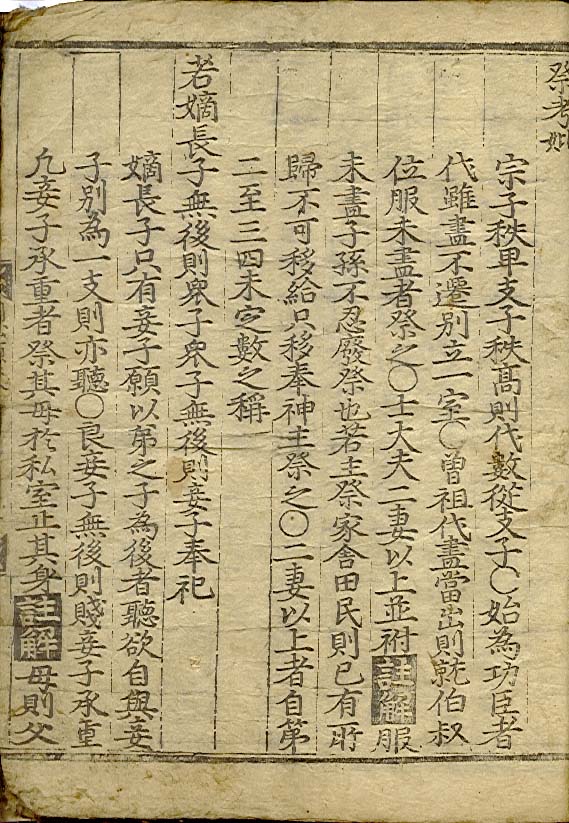 祭考妣
宗子秩卑支子秩高則代數從支子〇始為功臣者
代雖盡不遷別立一室〇曾祖代盡當出則就伯叔
位服未盡者祭之〇士大夫二妻以上並祔註解服
未盡子孫不忍廢祭也若主祭家舍田民則已有所
歸不可移給只移奉神主祭之〇二妻以上者自第
二至三四未定數之稱
若嫡長子無後則衆子衆子無後則妾子奉祀
嫡長子只有妾子願以弟之子為後者聽欲自與妾
子別為一支則亦聽〇良妾子無後則賤妾子承重
凡妾子承重者祭其母於私室止其身註解母則父